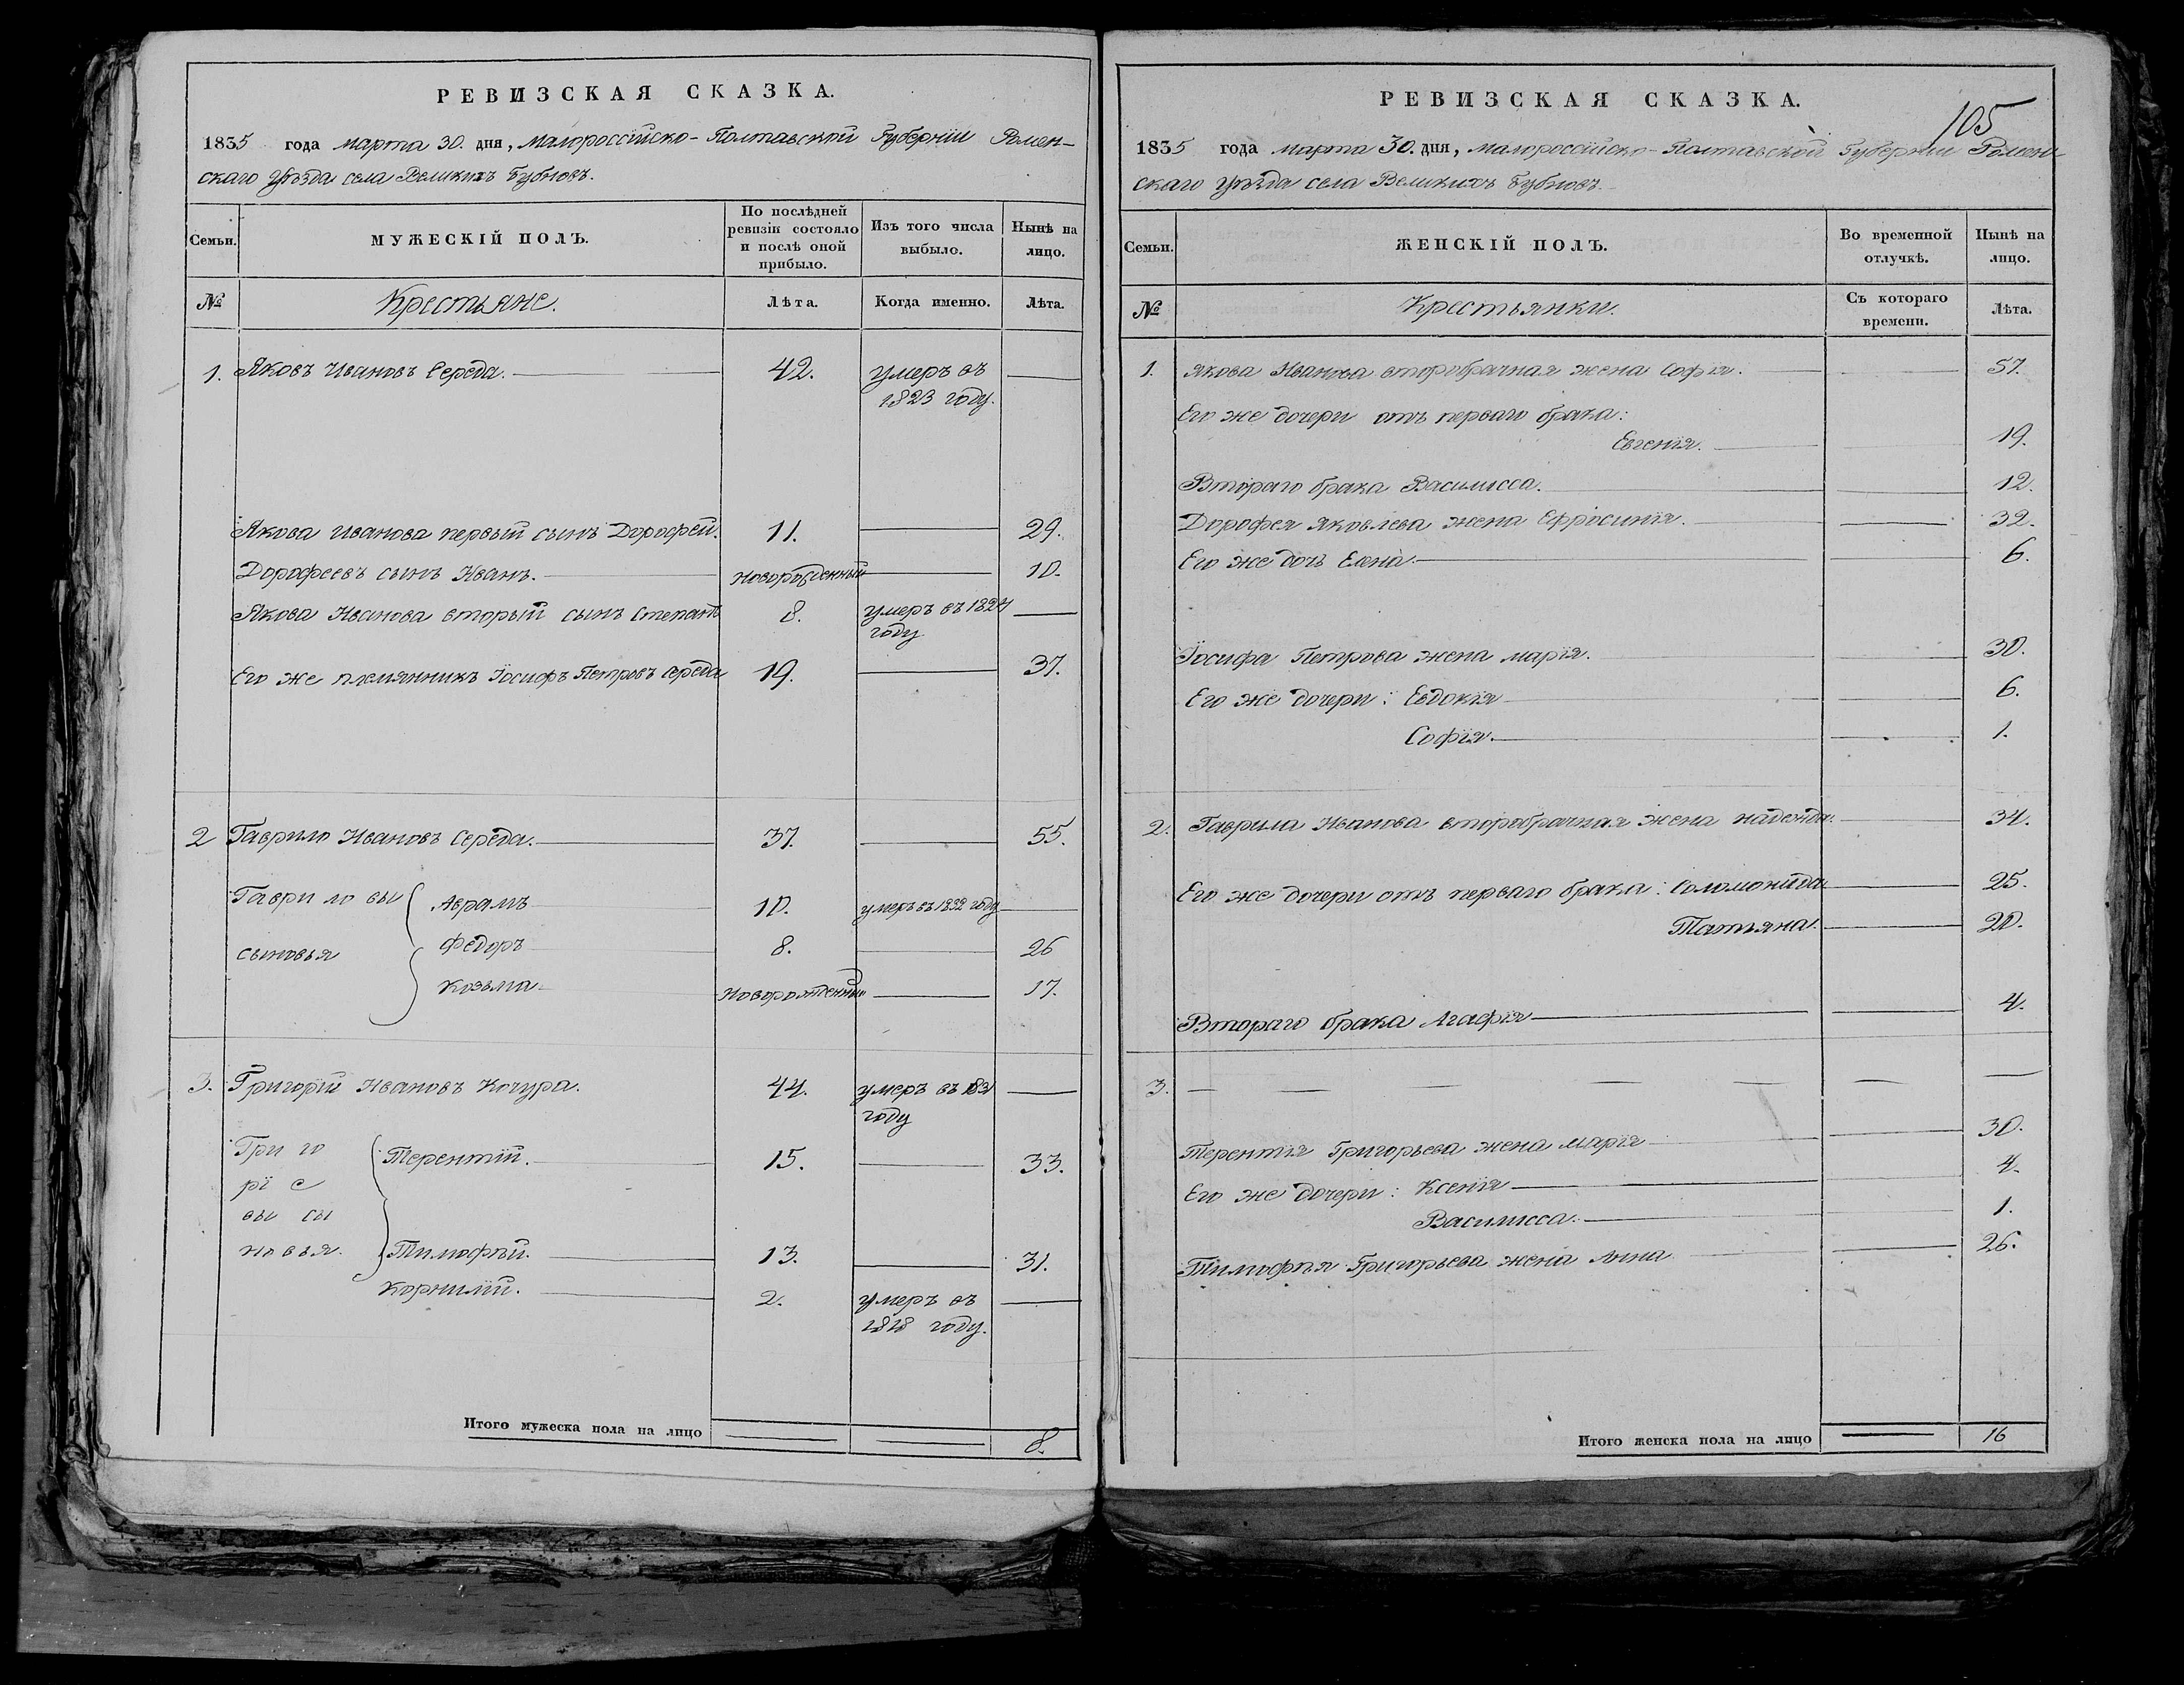 РЕВИЗСКАЯ СКАЗКА.
1835 года марта 30. дня, Малороссійско-Полтавской Губерніи Ромен-
скаго уѣзда села Великихъ Бубновъ.
Семьи.
МУЖЕСКІЙ ПОЛЪ.
По послѣдней ревизіи состояло и послѣ оной прибыло.
Изъ того числа выбыло.
Нынѣ на лицо.
№
Крестьяне.
Лѣта.
Когда именно.
Лѣта.
1. Яковъ Ивановъ Середа. 42. умеръ въ
1823 году.
Якова Иванова первый сынъ Дорофей. 11. 29.
Дорофеевъ сынъ Иванъ. новорожденный 10.
Якова Иванова вторый сынъ Степанъ 8. умеръ въ 1824
году
Его же племянникъ Іосифъ Петровъ Середа 19. 37.
2 Гаврило Ивановъ Середа. 37. 55.
Гаврило вы Аврамъ 10. умеръ въ 1832 году
сыновья Федоръ 8. 26
Козьма Новорожденный 17.
3. Григорій Ивановъ Кочура. 44. умеръ въ 1831
году
Гри го Терентій. 15. 33.
рі е
вы сы
новья. Тимофѣй. 13. 31.
Корнилій. 2. умеръ въ
1818 году.
Итого мужеска пола на лицо 8.
105
РЕВИЗСКАЯ СКАЗКА.
1835 года марта 30. дня, Малороссійско-Полтавской Губерніи Ромен-
скаго уѣзда села Великихъ Бубновъ.
Семьи.
ЖЕНСКІЙ ПОЛЪ.
Во временной отлучкѣ.
Нынѣ на лицо.
№
Крестьянки.
Съ котораго времени.
Лѣта.
1. Якова Иванова второбрачная жена Софія. 57.
Его же дочери отъ перваго брака:
Евгенія. 19.
Втораго брака Василисса. 12.
Дорофея Яковлева жена Ефросинія. 32.
Его же дочь Елена. 6.
Іосифа Петрова жена Марія. 30.
Его же дочери: Евдокія 6.
Софія. 1.
2. Гаврила Иванова второбрачная жена Надежда. 34.
Его же дочери отъ перваго брака: Соломонида 25.
Татьяна. 20.
Втораго брака Агафія 4.
3.
Терентія Григорьева жена Марія 30.
Его же дочери: Ксенія 4.
Василисса. 1.
Тимофѣя Григорьева жена Анна 26.
Итого женска пола на лицо 16